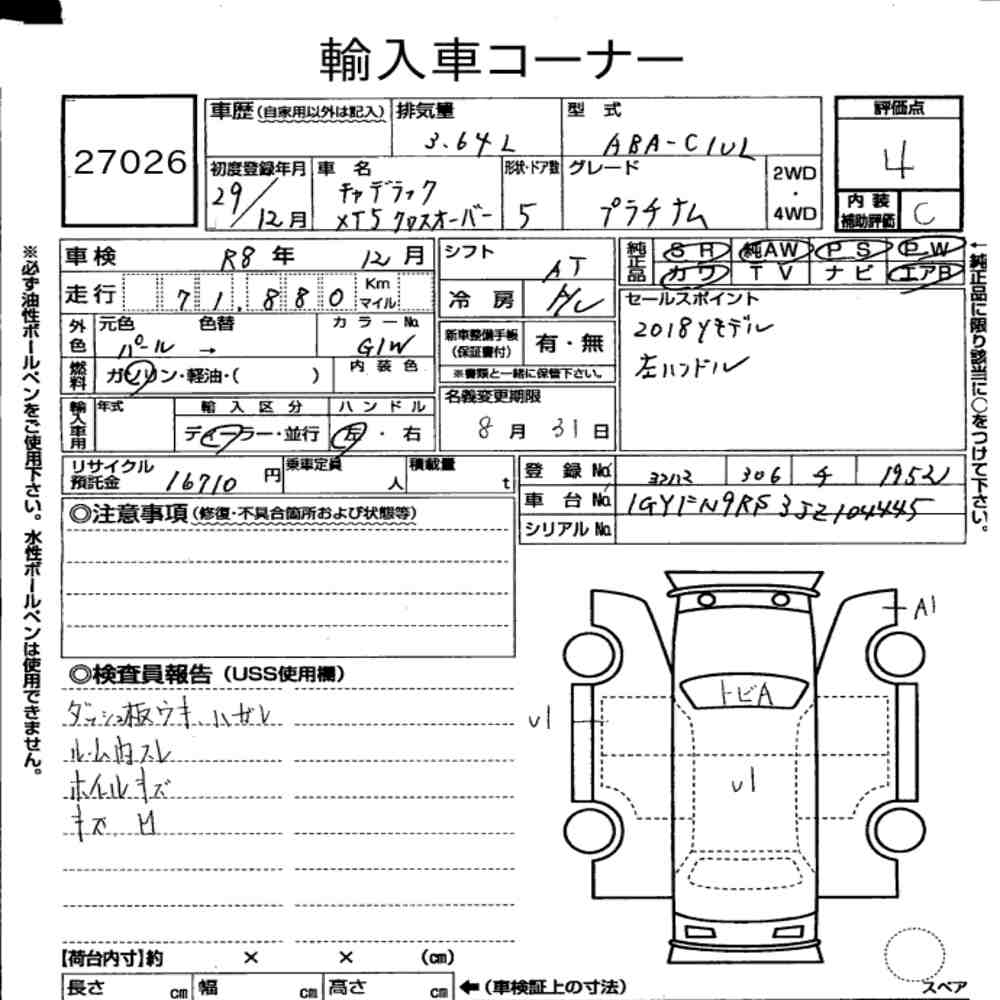 輸入車コーナー
27026
車歴(自家用以外は記入)
排気量
3.64L
型 式
ABA-C1UL
評価点
4
初度登録年月
29/12月
車 名
キャデラック
XT5 クロスオーバー
形状・ドア数
5
グレード
プラチナム
2WD
・
4WD
内 装
補助評価
C
※必ず油性ボールペンをご使用下さい。水性ボールペンは使用できません。
車検 R8年 12月
走行 71.880 Km マイル
外色
元色 色替
パール →
カラーNo.
G1W
燃料
ガソリン・軽油・( )
内装色
輸入車用
年式
輸入区分
ディーラー・並行
ハンドル
左・右
シフト
AT
冷房
A/C
新車整備手帳
(保証書付)
有・無
※書類と一緒に保管下さい。
名義変更期限
8月31日
純正品
SR 純AW PS PW
カワ TV ナビ エアB
セールスポイント
2018Yモデル
左ハンドル
←純正品に限り該当に○をつけて下さい。
リサイクル
預託金
16710円
乗車定員
人
積載量
t
登録No. 306 チ 1952
車台No. 1GYFN9RS3JZ104445
シリアルNo.
◎注意事項(修復・不具合箇所および状態等)
◎検査員報告(USS使用欄)
ダッシュ板ウキ、ハガレ
ルーム内スレ
ホイールキズ
キズ 凹
A1
トビA
U1
U1
【荷台内寸】約 × × (cm)
長さ cm 幅 cm 高さ cm ←(車検証上の寸法)
スペア